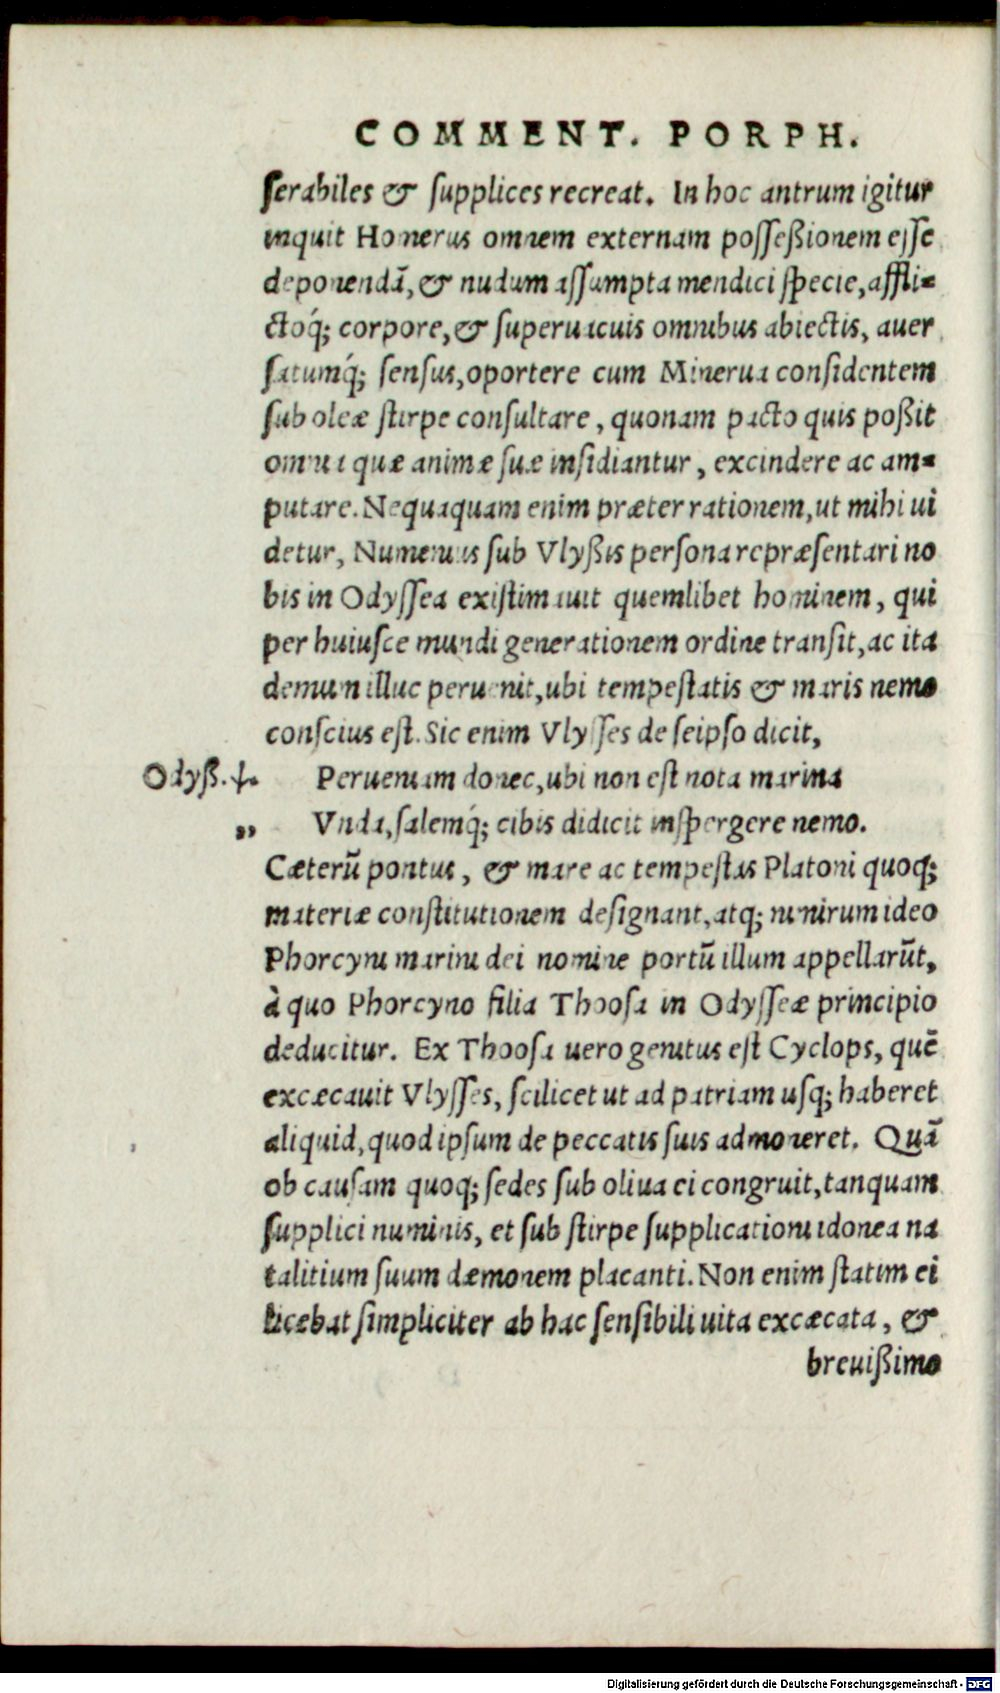 COMMENT. PORPH.
serabiles & supplices recreat. In hoc antrum igitur
inquit Homerus omnem externam posseßionem esse
deponendā, & nudum assumpta mendici specie, affli-
ctoq́; corpore, & superuacuis omnibus abiectis, auer
satumq́; sensus, oportere cum Minerua considentem
sub oleæ stirpe consultare, quonam pacto quis poßit
omnia quæ animæ suæ insidiantur, excindere ac am-
putare. Nequaquam enim præter rationem, ut mihi ui
detur, Numenius sub Vlyßis persona repræsentari no
bis in Odyssea existimauit quemlibet hominem, qui
per huiusce mundi generationem ordine transit, ac ita
demum illuc peruenit, ubi tempestatis & maris nemo
conscius est. Sic enim Vlysses de seipso dicit,
Odyß. ↓.
Perueniam donec, ubi non est nota marina
„ Vnda, salemq́; cibis didicit inspergere nemo.
Cæterū pontus, & mare ac tempestas Platoni quoq;
materiæ constitutionem designant, atq; nimirum ideo
Phorcyni marini dei nomine portū illum appellarūt,
à quo Phorcyno filia Thoosa in Odysseæ principio
deducitur. Ex Thoosa uero genitus est Cyclops, quē
excæcauit Vlysses, scilicet ut ad patriam usq; haberet
aliquid, quod ipsum de peccatis suis admoneret. Quā
ob causam quoq; sedes sub oliua ei congruit, tanquam
supplici numinis, et sub stirpe supplicationi idonea na
talitium suum dæmonem placanti. Non enim statim ei
licebat simpliciter ab hac sensibili uita excæcata, &
breuißimo
Digitalisierung gefördert durch die Deutsche Forschungsgemeinschaft - DFG